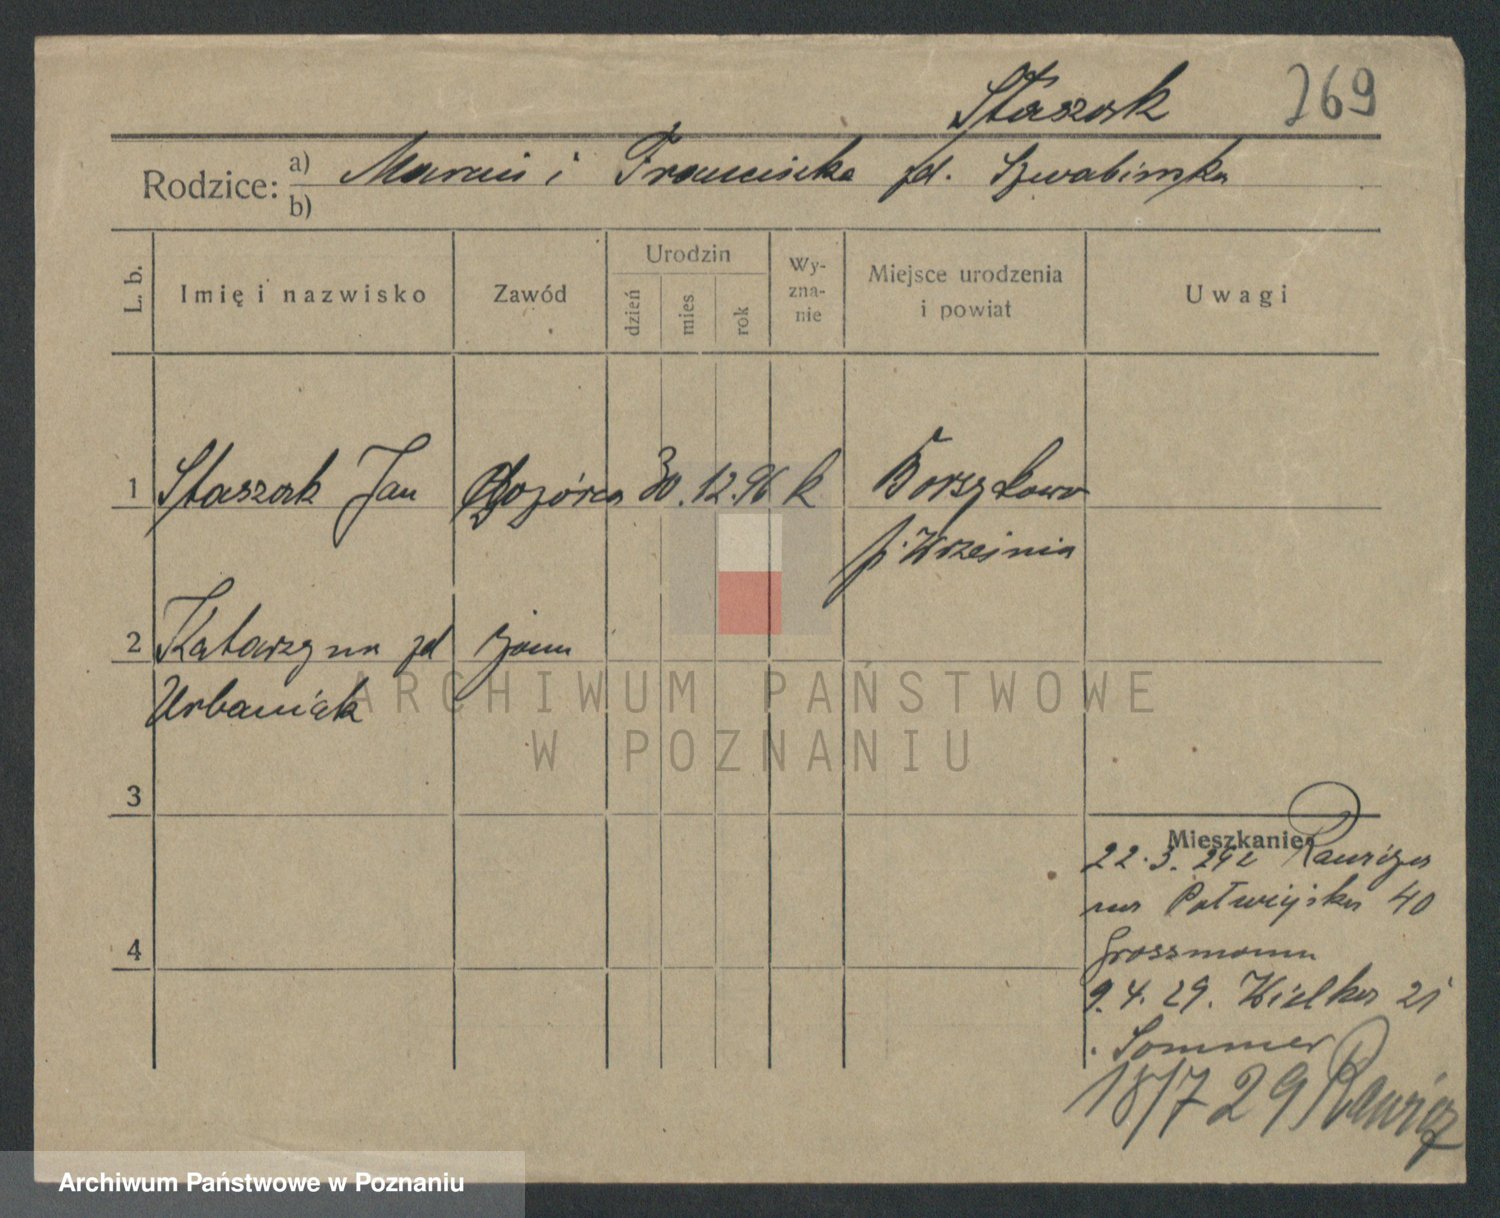 Staszak 269
Rodzice: a) Marcin i Franciszka zd. Szwabińska
b)
L. b. Imię i nazwisko Zawód Urodzin dzień mies rok Wy-zna-nie Miejsce urodzenia i powiat Uwagi
1 Staszak Jan Dozórca 30. 12. 96 k Borzykowo
p. Września
2 Katarzyna zd żona
Urbaniak
ARCHIWUM PAŃSTWOWE
W POZNANIU
3
Mieszkanie:
22. 3. 29 z Rawicza
na Półwiejska 40
4
Grossmann
9. 4. 29. Wielka 21
Sommer
18/7 29 Rawicz
Archiwum Państwowe w Poznaniu